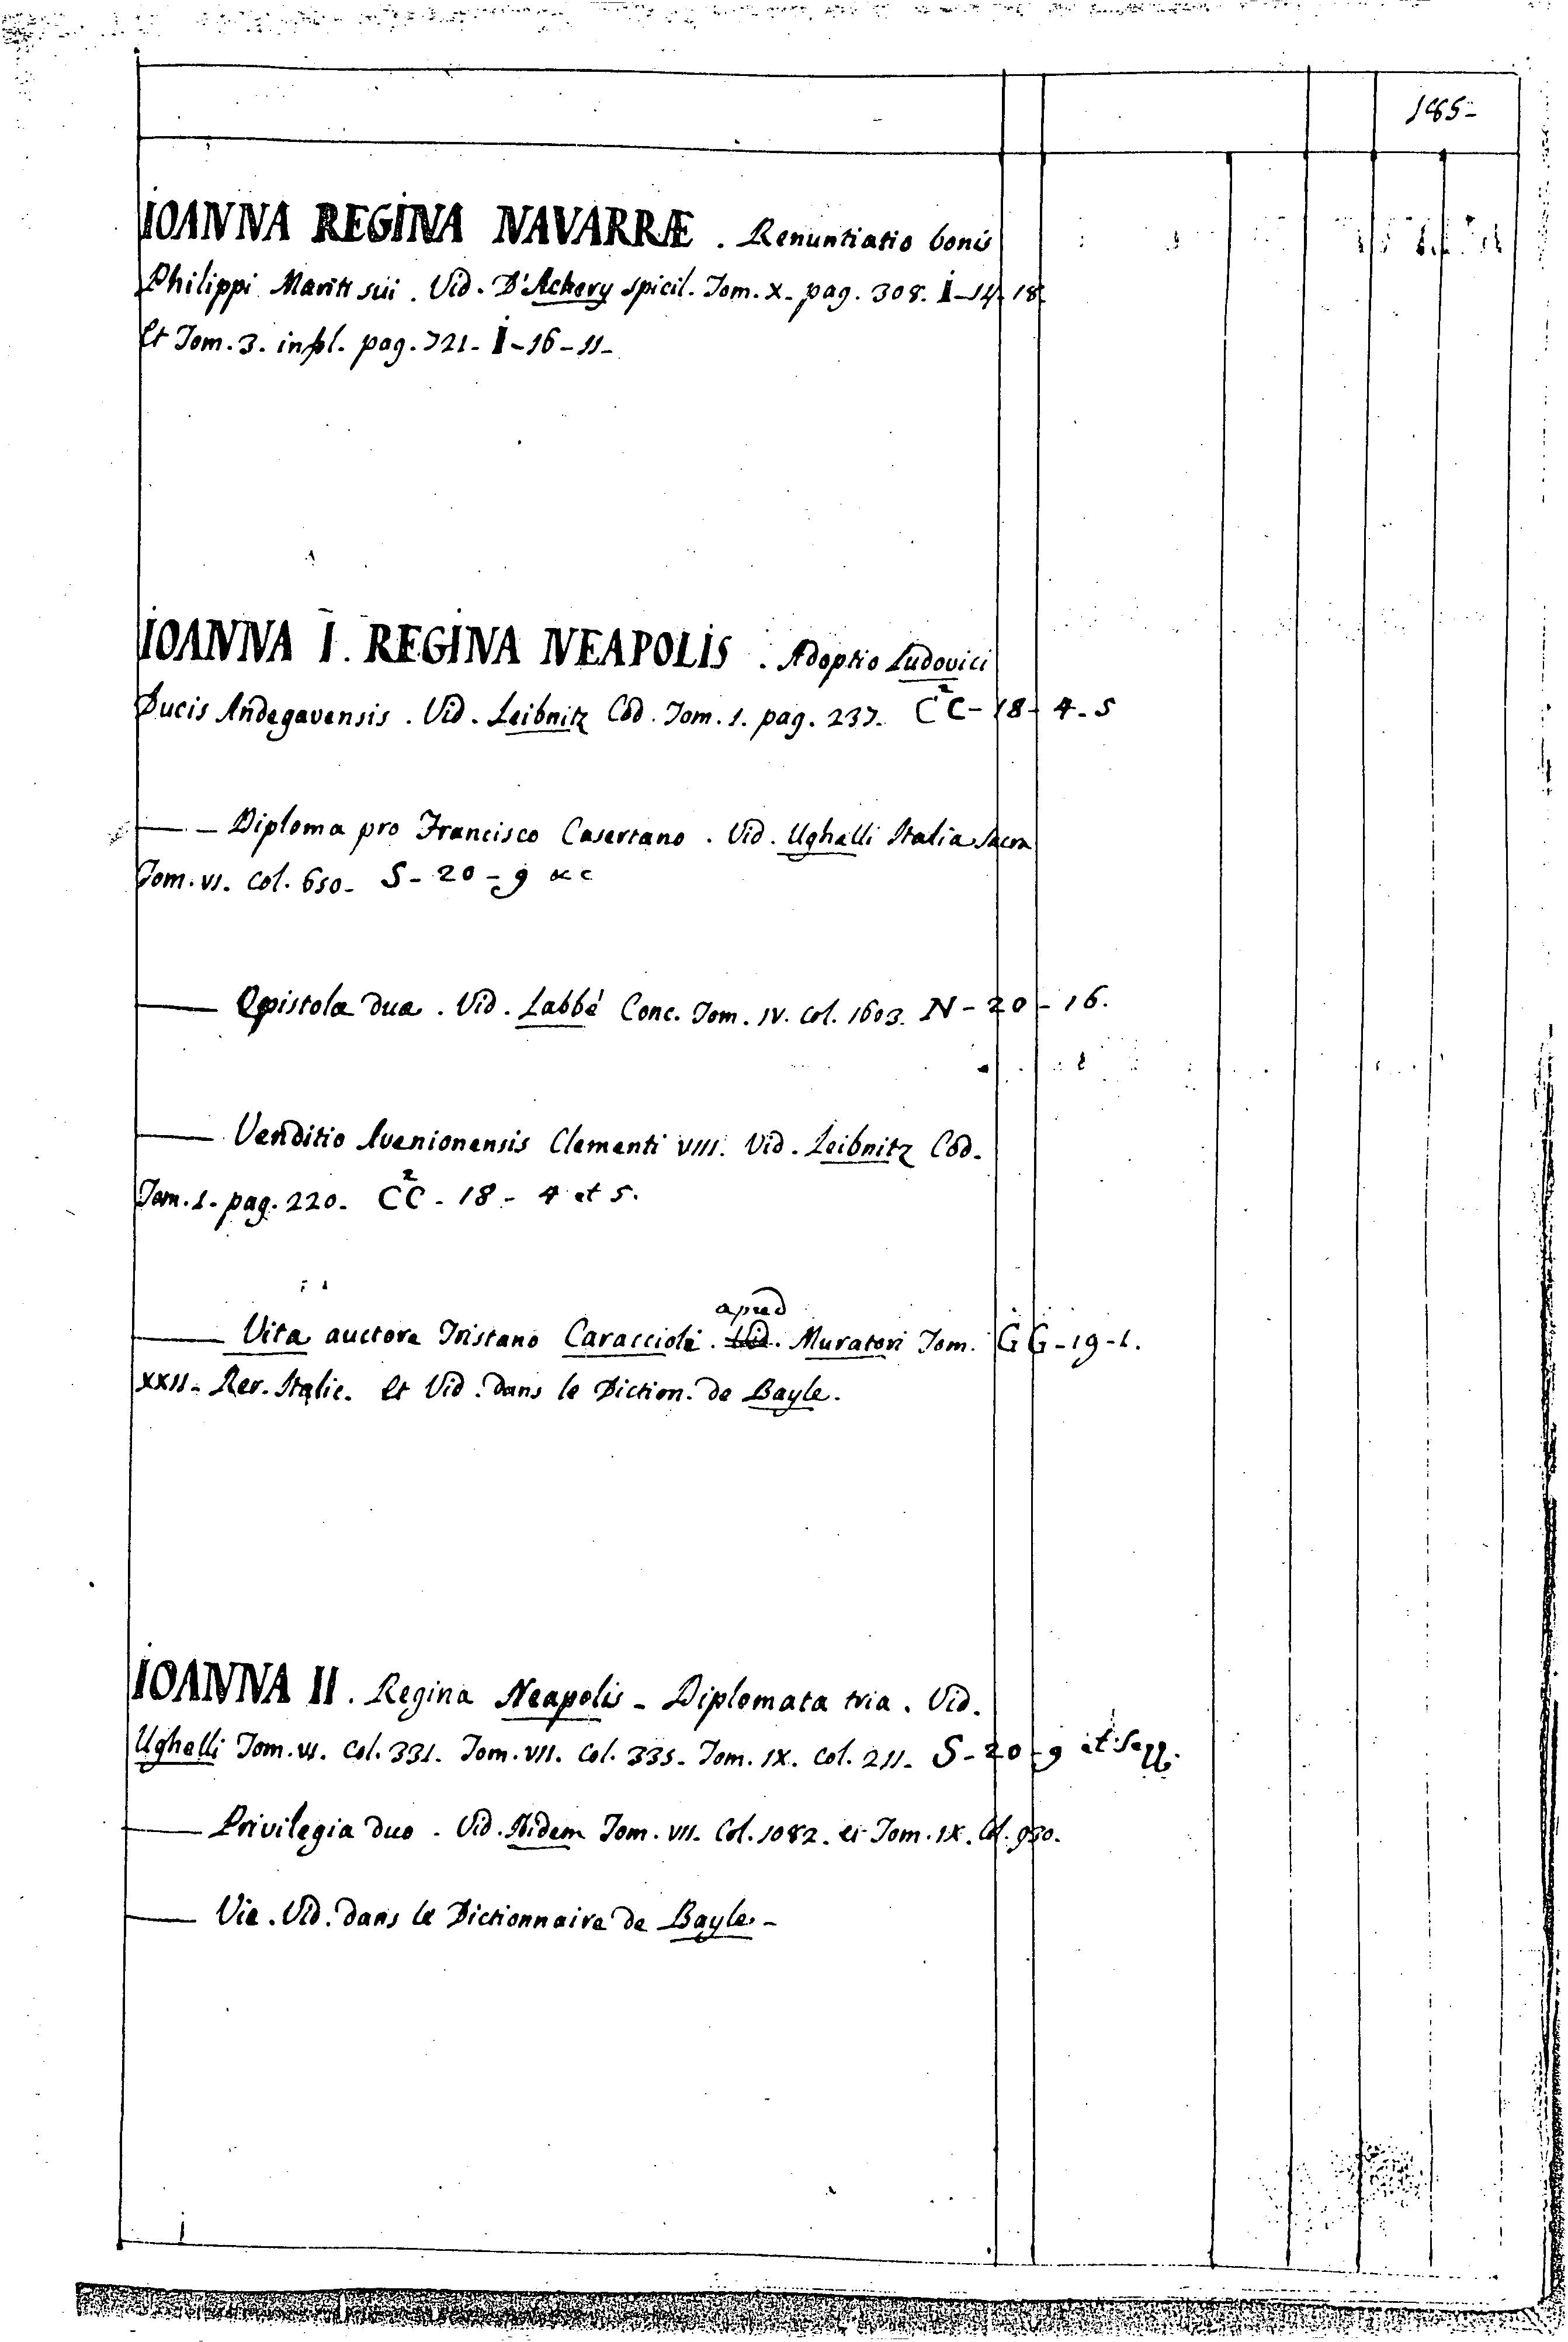 185-
IOANNA REGINA NAVARRÆ . Renuntiatio bonis
Philippi Mariti sui . Vid. D'Achery spicil. Tom. X. pag. 308. I-14-18
Et Tom. 3. infol. pag. 721. I-16-11-
IOANNA I. REGINA NEAPOLIS . Adoptio Ludovici
Ducis Andegavensis . Vid. Leibnitz Cod. Tom. 1. pag. 237. C²C-18-4-5
—— Diploma pro Francisco Casertano . Vid. Ughelli Italia Sacra
Tom. VI. Col. 650- S-20-9 &c
—— Epistolæ duæ . Vid. Labbé Conc. Tom. IV. Col. 1603. N-20-16.
—— Venditio Avenionensis Clementi VIII. Vid. Leibnitz Cod.
Tom. 1. pag. 220. C²C-18-4 et 5.
apud
—— Vita auctore Tristano Caraccioli . Vid. Muratori Tom. GG-19-1.
XXII. Rer. Italic. Et Vid. dans le Diction. de Bayle.
IOANNA II. Regina Neapolis - Diplomata tria . Vid.
Ughelli Tom. VI. Col. 331. Tom. VII. Col. 335. Tom. IX. Col. 211. S-20-9 et seqq.
—— Privilegia duo . Vid. Ibidem Tom. VII. Col. 1082. et Tom. IX. Col. 930.
—— Vie . Vid. dans le Dictionnaire de Bayle.-